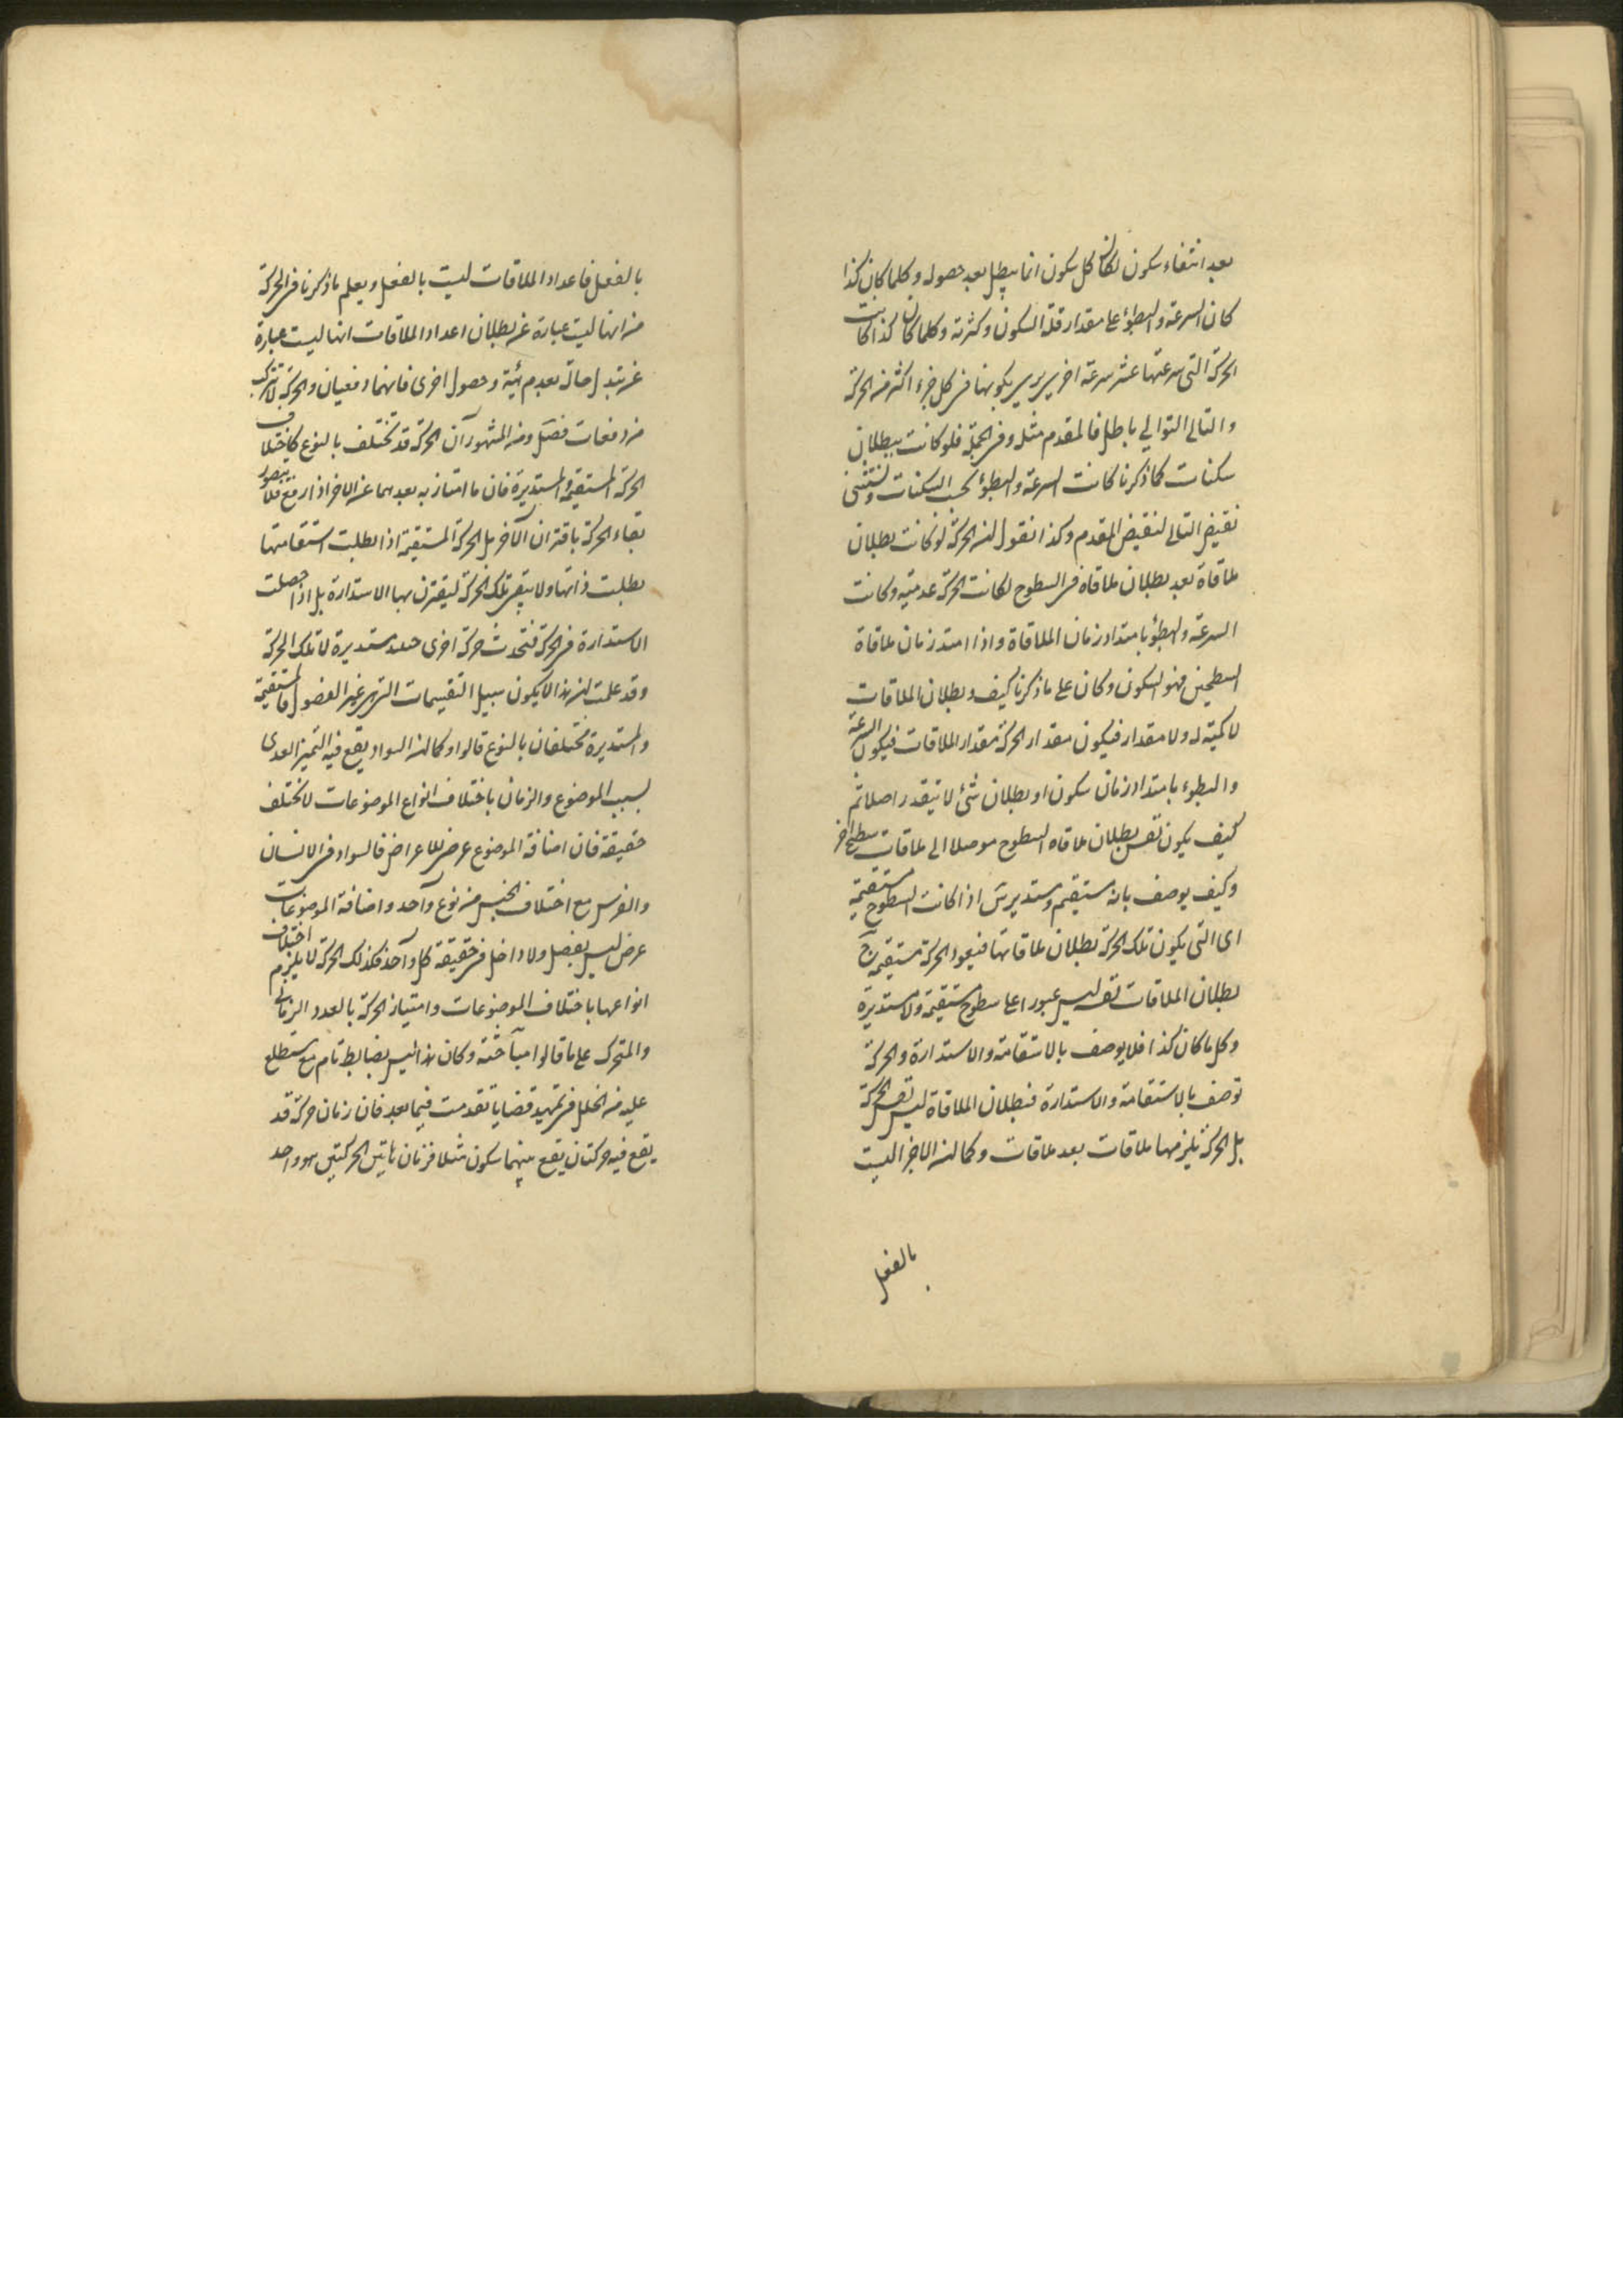 بعد انتفاء سكون لكان كل سكون انما يبطل بعد حصوله وكلما كان كذا
كان السرعة والبطؤ على مقدار قلة السكون وكثرته وكلما كان كذا كانت
الحركة التى سرعتها عشر سرعة اخرى يرى سكونها فى كل جزء اكثر من الحركة
والتالى التوالي باطل فالمقدم مثله وفى الجملة فلو كانت ببطلان
سكنات كما ذكرنا كانت السرعة والبطؤ بحسب السكنات ونستثنى
نقيض التالى لنقيض المقدم وكذا نقول ان الحركة لو كانت بطلان
ملاقاة بعد بطلان ملاقاة فى السطوح لكانت الحركة عدمية وكانت
السرعة والبطؤ بامتداد زمان الملاقاة واذا امتد زمان ملاقاة
السطحين فهو السكون وكان على ما ذكرنا كيف وبطلان الملاقات
لا كمية له ولا مقدار فيكون مقدار الحركة مقدار الملاقات فيكون السرعة
والبطوء بامتداد زمان سكون او بطلان شئ لا يتقدر اصلا ثم
كيف يكون نفس بطلان ملاقاه السطوح موصلا الى ملاقات سطح آخر
وكيف يوصف بانه مستقيم ومستدير اذا كانت السطوح مستقيمة
اى التى يكون تلك الحركة بطلان ملاقاتها فيعود الحركة مستقيمة
بطلان الملاقات نفسه ليس عبورا على سطوح مستقيمة ولا مستديرة
وكل ما كان كذا فلا يوصف بالاستقامة والاستدارة والحركة
توصف بالاستقامة والاستدارة فبطلان الملاقاة ليس نفس الحركة
بل الحركة يلزمها ملاقات بعد ملاقات وكما ان الاجزا ليست
بالفعل
بالفعل فاعداد الملاقات ليست بالفعل ويعلم ما ذكرنا فى الحركة
من انها ليست عبارة عن بطلان اعداد الملاقات انها ليست عبارة
عن تبدل حالة بعدم هيئة وحصول اخرى فانهما دفعيان والحركة لا تتركب
من دفعات فصل ومن المشهور ان الحركة قد تختلف بالنوع كاختلاف
الحركة المستقيمة والمستديرة فان ما امتاز به بعدهما عن الاخر اذا رفع فلا يتصور
بقاء الحركة باقتران الآخر بل الحركة المستقيمة اذا بطلت استقامتها
بطلت ذاتها ولا يبقى تلك الحركة ليقترن بها الاستدارة بل اذا حصلت
الاستدارة فى الحركة فتحدث حركة اخرى مستديرة لا تلك الحركة
وقد علمت ان هذا لا يكون سبيل التقسيمات التى هى غير الفصول فالمستقيمة
والمستديرة مختلفان بالنوع قالوا وكما ان السواد يقع فيه التميز العددى
بسبب الموضوع والزمان باختلاف انواع الموضوعات لا تختلف
حقيقة فان اضافة الموضوع عرضى للاعراض فالسواد فى الانسان
والفرس مع اختلاف الجنس من نوع واحد واضافة الموضوعات
عرض ليس بفصل ولا داخل فى حقيقة كل واحد فكذلك الحركة لا يلزم اختلاف
انواعها باختلاف الموضوعات وامتياز الحركة بالعدد الزمان
والمتحرك على ما قالوا مباحثة وكان هذا ليس بضابط تام مع ستطلع
عليه من الخلل فى تمهيد قضايا تقدمت فيما بعد فان زمان حركة قد
يقع فيه حركتان يقع بينهما سكون مثلا فزمان هاتين الحركتين هو واحد